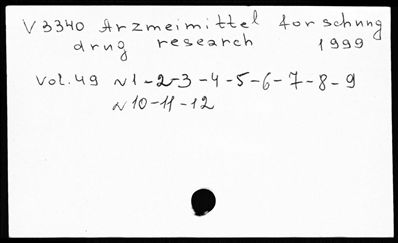 V 3340 Arzmeimittel forschung
drug research 1999
Vol. 49 N1-2-3-4-5-6-7-8-9
N10-11-12